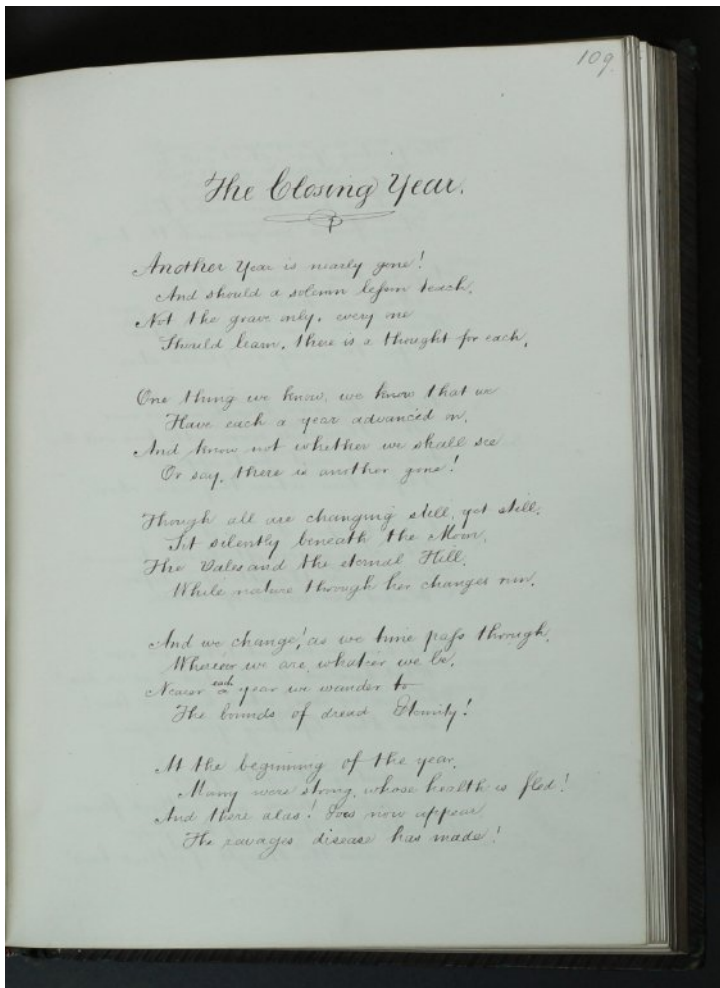 109.
The Closing Year.
Another Year is nearly gone!
And should a solemn lesson teach,
Not the grave only, every one
Should learn, there is a thought for each,
One thing we know, we know that we
Have each a year advanced on,
And know not whether we shall see
Or say, there is another gone!
Though all are changing still, yet still,
Sit silently beneath the Moon,
The Vales and the eternal Hill,
While nature through her changes run,
And we change! as we time pass through,
Wherever we are, whate'er we be,
Nearer each year we wander to
The bounds of dread Eternity!
At the beginning of the year,
Many were strong, whose health is fled!
And there alas! now appear
The ravages disease has made!